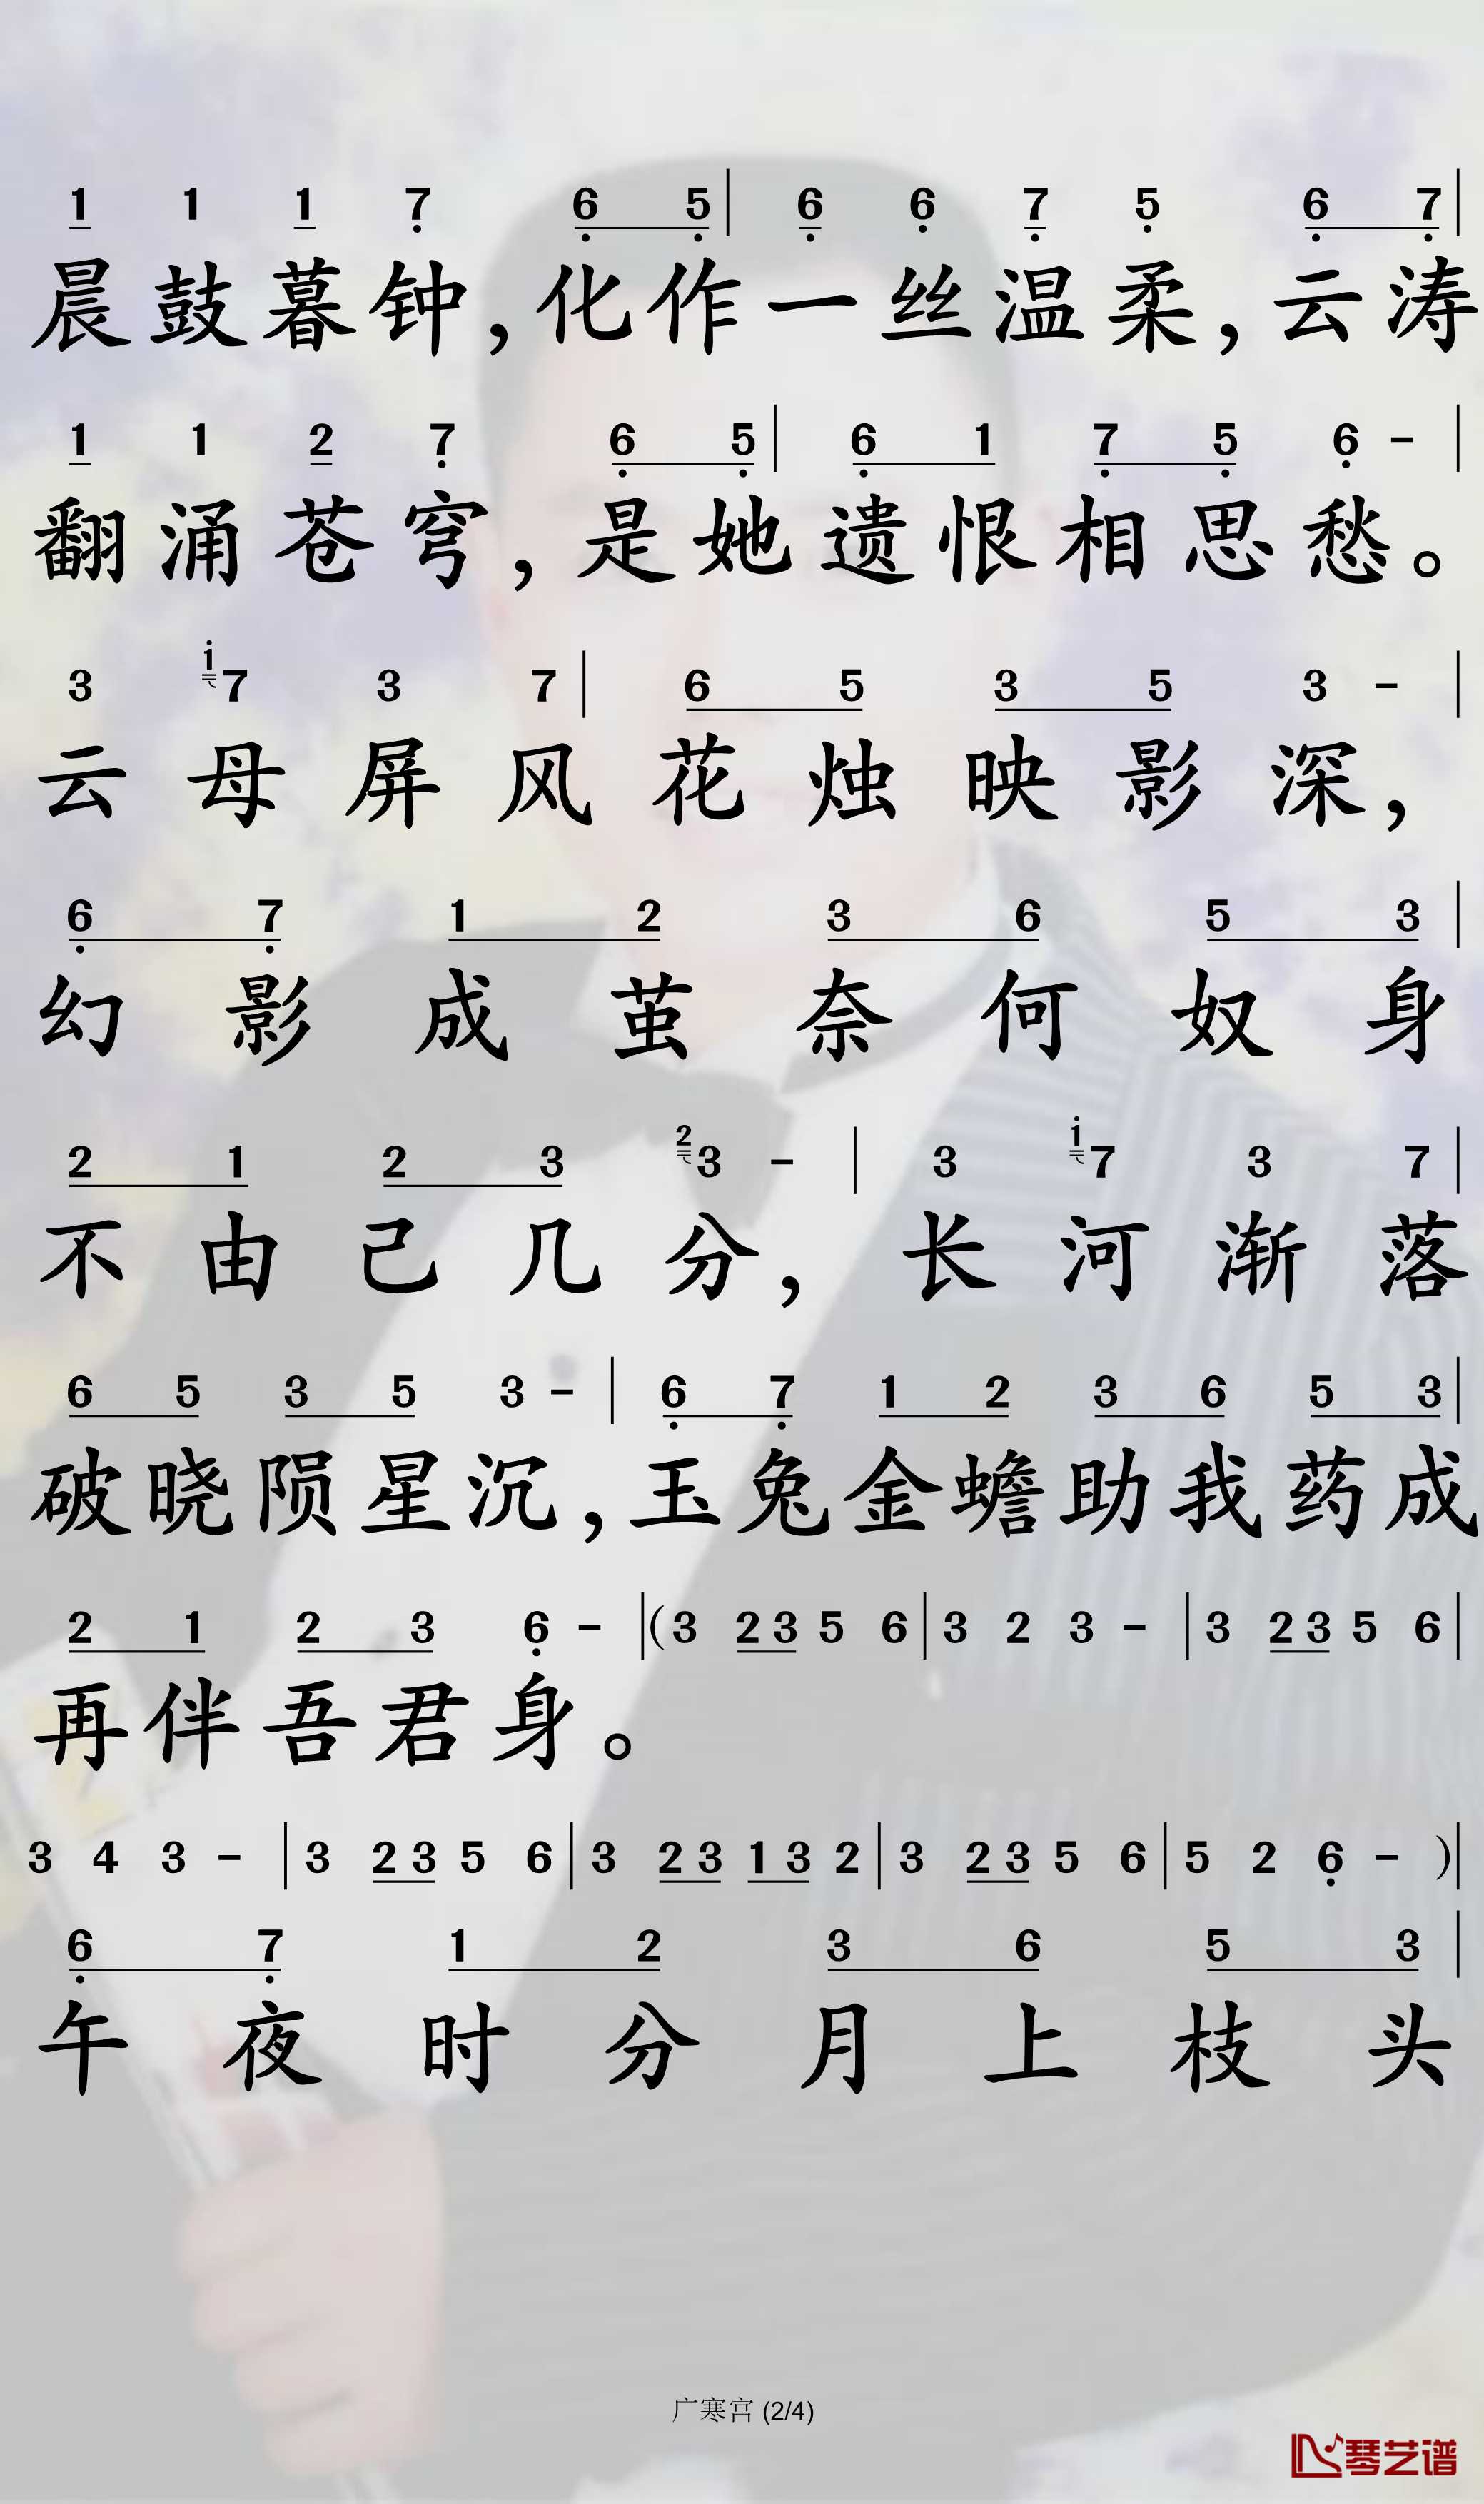 1 1 1 7 6 5 | 6 6 7 5 6 7 |
晨鼓暮钟，化作一丝温柔，云涛
1 1 2 7 6 5 | 6 1 7 5 6 - |
翻涌苍穹，是她遗恨相思愁。
3 i7 3 7 | 6 5 3 5 3 - |
云母屏风花烛映影深，
6 7 1 2 3 6 5 3 |
幻影成茧奈何奴身
2 1 2 3 23 - | 3 i7 3 7 |
不由己几分，长河渐落
6 5 3 5 3 - | 6 7 1 2 3 6 5 3 |
破晓陨星沉，玉兔金蟾助我药成
2 1 2 3 6 - | (3 2 3 5 6 | 3 2 3 - | 3 2 3 5 6 |
再伴吾君身。
3 4 3 - | 3 2 3 5 6 | 3 2 3 1 3 2 | 3 2 3 5 6 | 5 2 6 - ) |
6 7 1 2 3 6 5 3 |
午夜时分月上枝头
广寒宫 (2/4)
琴艺谱